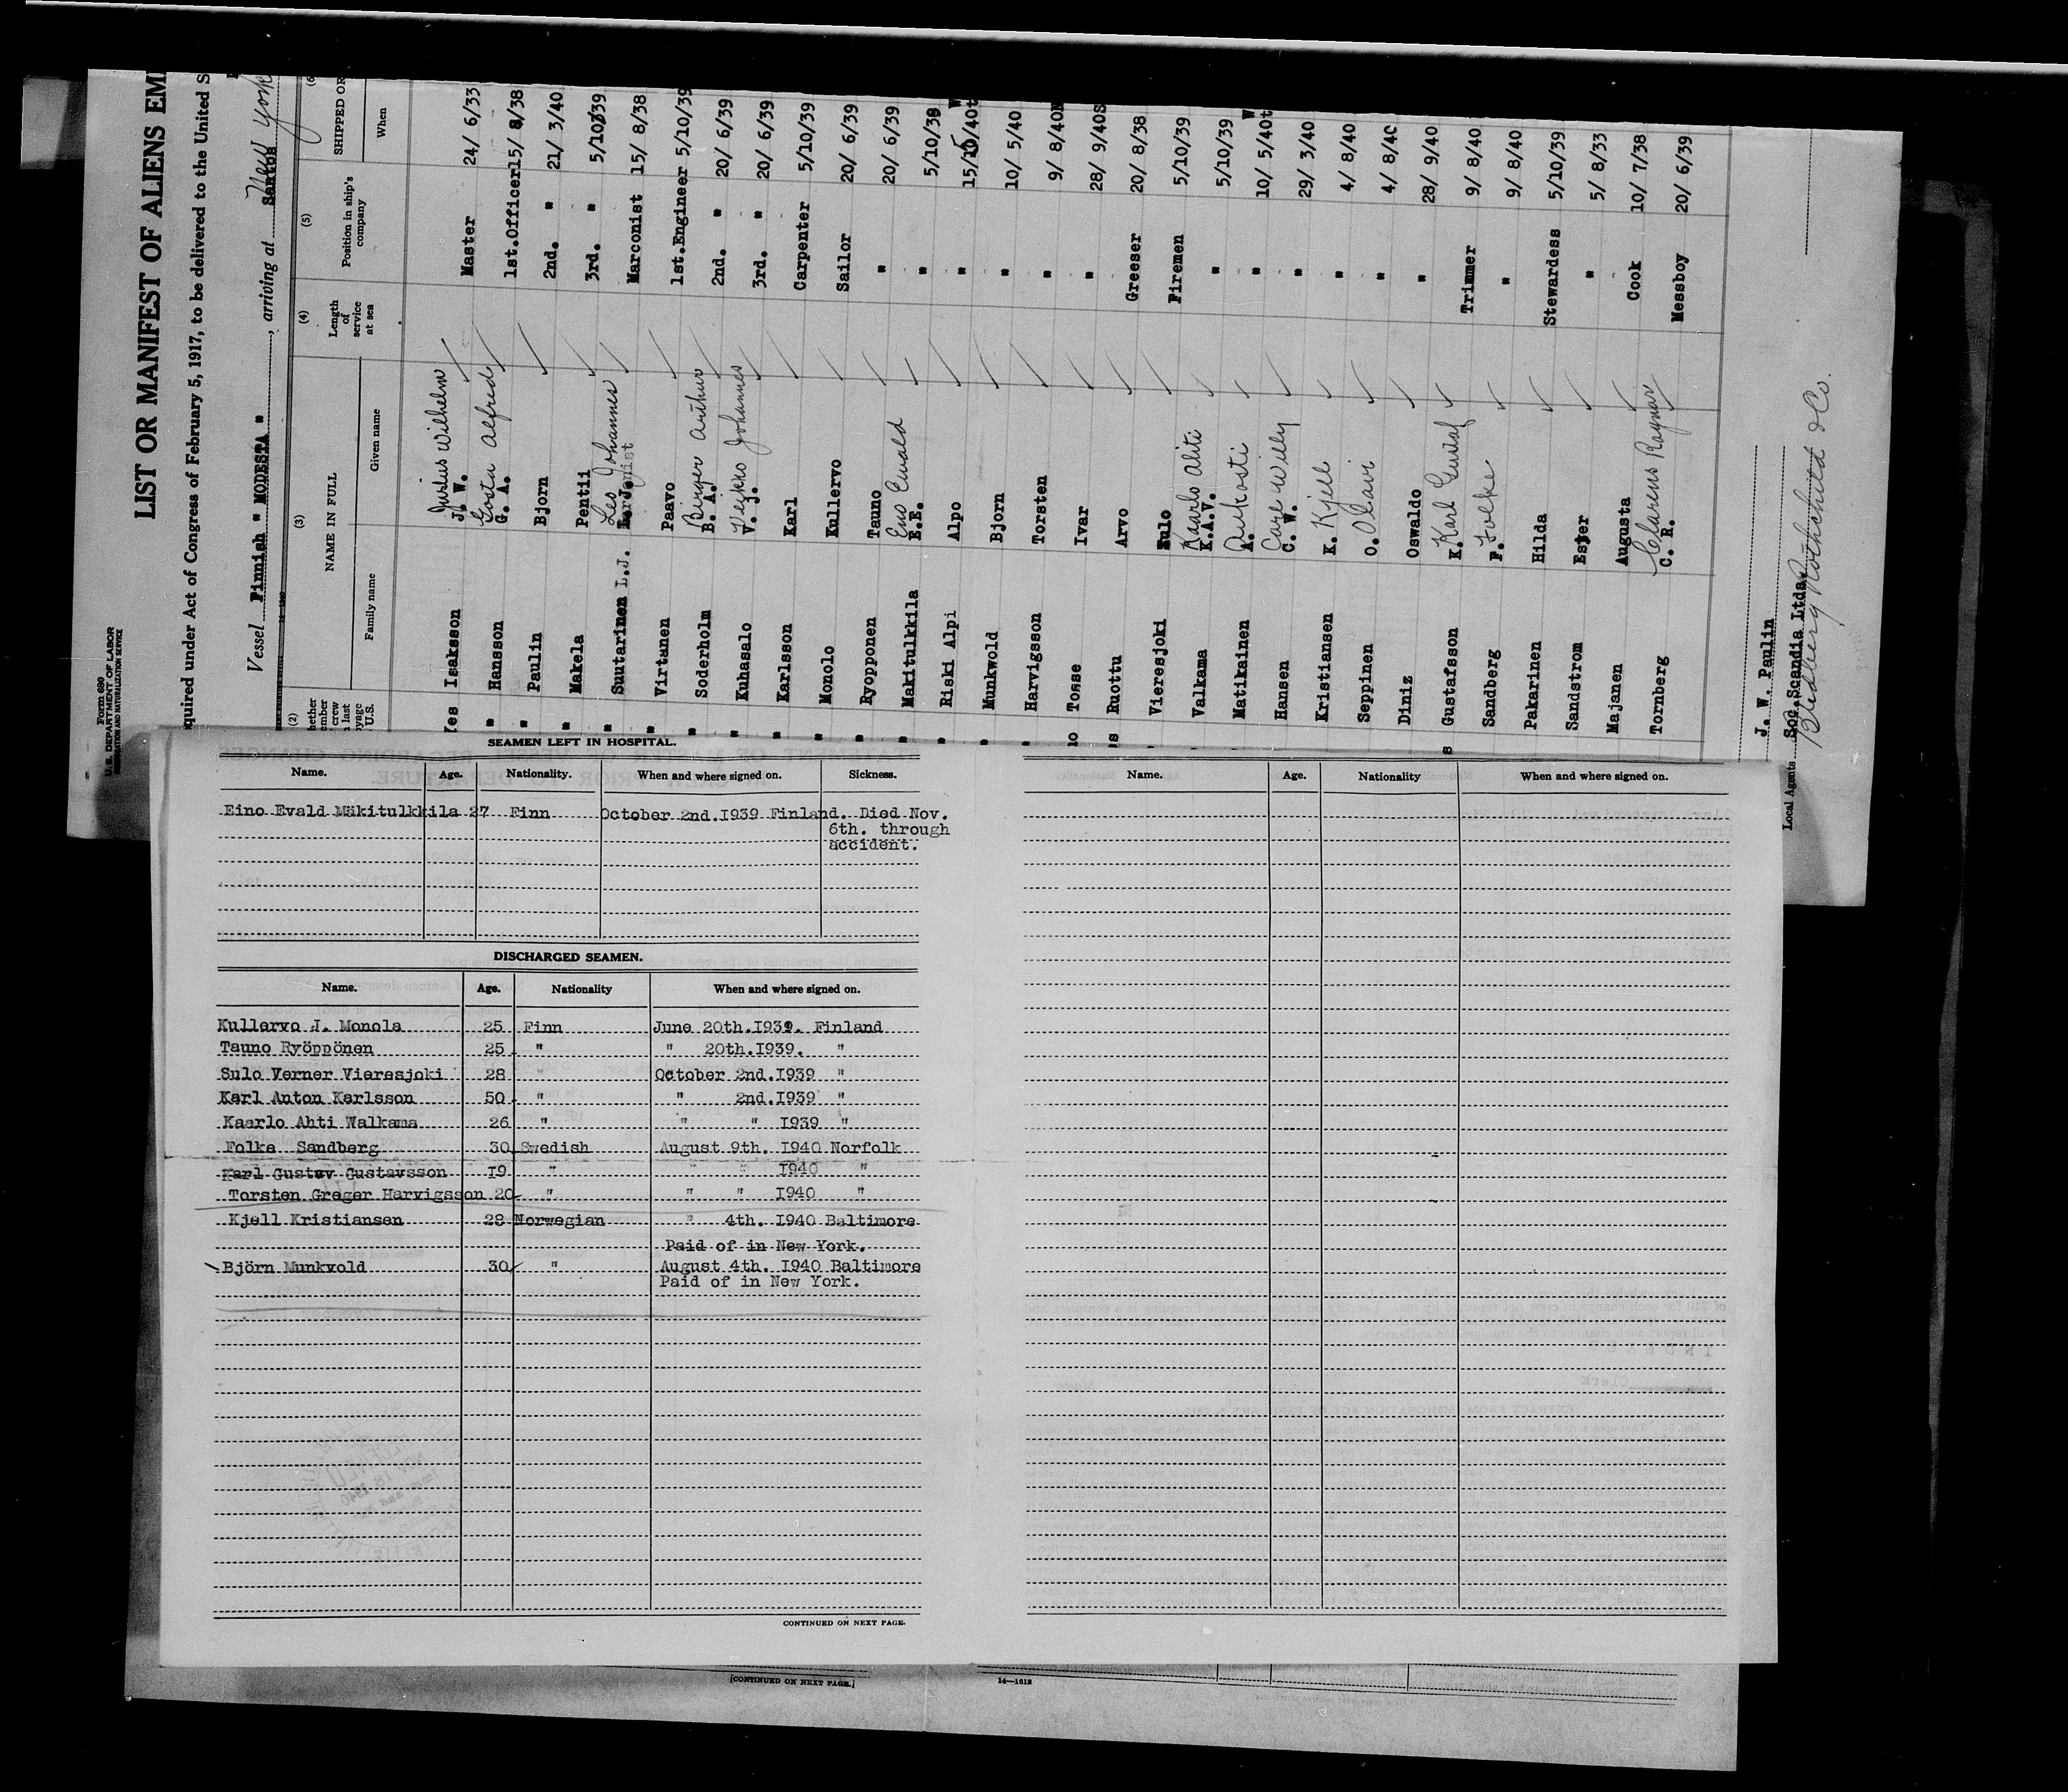 Form 689
U.S. DEPARTMENT OF LABOR
IMMIGRATION AND NATURALIZATION SERVICE
LIST OR MANIFEST OF ALIENS EM
quired under Act of Congress of February 5, 1917, to be delivered to the United S
Vessel Finnish " MODESTA ", arriving at Santos New York
(2) (3) (4) (5) (6)
hether ember crew last yage U.S. NAME IN FULL Length of service at sea Position in ship's company SHIPPED OR
Family name Given name When
Yes Isaksson J. W. Justus Wilhelm Master 24/ 6/33
" Hansson G. A. Gosta Alfred 1st.Officer 15/ 8/38
" Paulin Bjorn 2nd. " 21/ 3/40
" Makela Pentii 3rd. " 5/10/39
" Suutarinen L.J. Leo Johannes Marconist 15/ 8/38
" Virtanen Paavo 1st.Engineer 5/10/39
" Soderholm B. A. Birger Arthur 2nd. " 20/ 6/39
" Kuhasalo V. J. Veikko Johannes 3rd. " 20/ 6/39
" Karlsson Karl Carpenter 5/10/39
" Monolo Kullervo Sailor 20/ 6/39
" Ryopponen Tauno " 20/ 6/39
" Makitulkkila E.E. Eno Evald " 5/10/39
" Riski Alpi Alpo " 15/ 5/40t
" Munkwold Bjorn " 10/ 5/40
" Harvigsson Torsten " 9/ 8/40N
Tosse Ivar " 28/ 9/40S
Ruottu Arvo Greeser 20/ 8/38
Vieresjoki Sulo Firemen 5/10/39
Valkama K.A.V. Kaarlo Ahti " 5/10/39
Matikainen A. " 10/ 5/40t
Hansen C. W. Carl Wily " 29/ 3/40
Kristiansen K. Kjell " 4/ 8/40
Seppinen O. Olavi " 4/ 8/40
Diniz Oswaldo " 28/ 9/40
Gustafsson K. Karl Gustaf Trimmer 9/ 8/40
Sandberg F. Folke " 9/ 8/40
Pakarinen Hilda Stewardess 5/10/39
Sandstrom Ester " 5/ 8/33
Majanen Augusta Cook 10/ 7/38
Tornberg C. R. Clarens Ragnar Messboy 20/ 6/39
J. W. Paulin
Local Agents Soc.Scandia Ltda.
Rothchild & Co.
SEAMEN LEFT IN HOSPITAL.
Name. Age. Nationality. When and where signed on. Sickness.
Eino Evald Mäkitulkkila 27 Finn October 2nd.1939 Finland. Died Nov.
6th. through
accident.
DISCHARGED SEAMEN.
Name. Age. Nationality When and where signed on.
Kullervo J. Monola 25 Finn June 20th.1939. Finland
Tauno Ryöppönen 25 " " 20th.1939. "
Sulo Verner Vieresjoki 28 " October 2nd.1939 "
Karl Anton Karlsson 50 " " 2nd.1939 "
Kaarlo Ahti Walkama 26 " " " 1939 "
Folke Sandberg 30 Swedish August 9th. 1940 Norfolk
Karl Gustav Gustavsson 19 " " " 1940 "
Torsten Greger Harvigsson 20 " " " 1940 "
Kjell Kristiansen 28 Norwegian " 4th. 1940 Baltimore
Paid of in New York.
Björn Munkvold 30 " August 4th. 1940 Baltimore
Paid of in New York.
CONTINUED ON NEXT PAGE.
Name. Age. Nationality When and where signed on.
[CONTINUED ON NEXT PAGE.]
14—1612